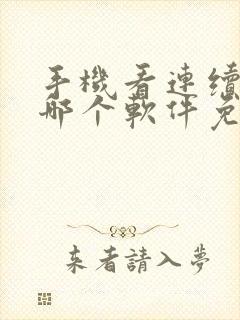 手機看連續
哪个軟件免
来者請入夢